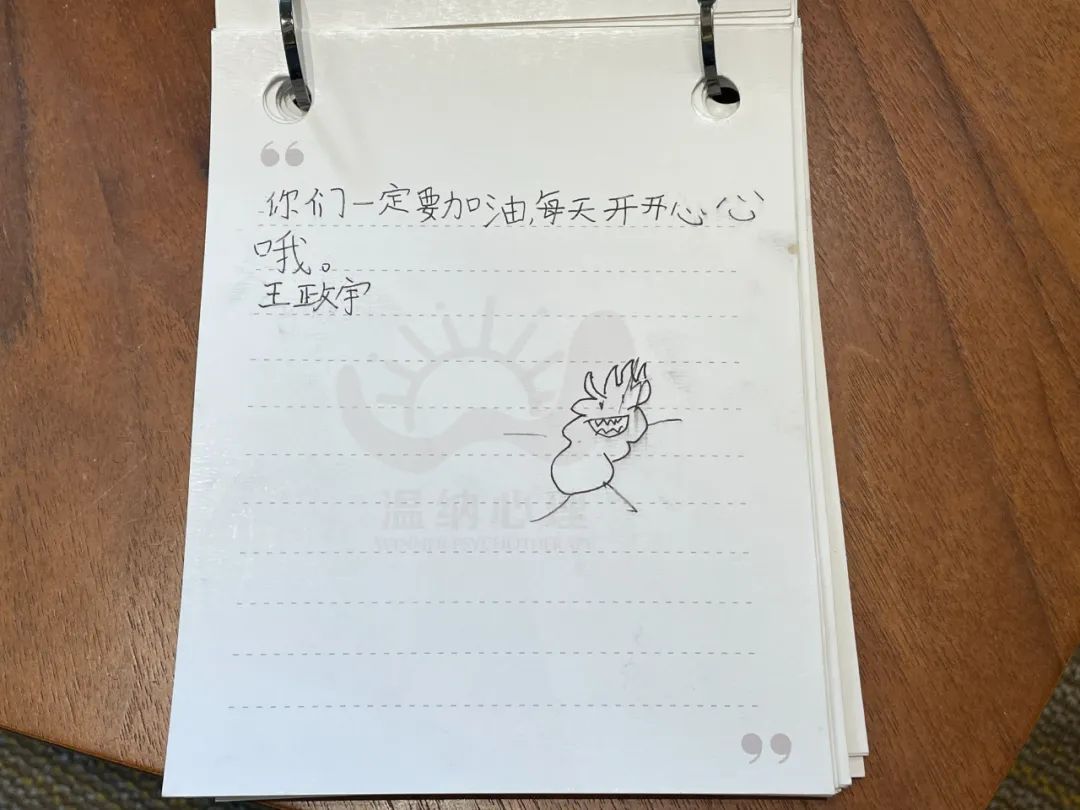 你们一定要加油,每天开开心心
哦。
王政宇
温纳心理
WENNER PSYCHOTHERAPY